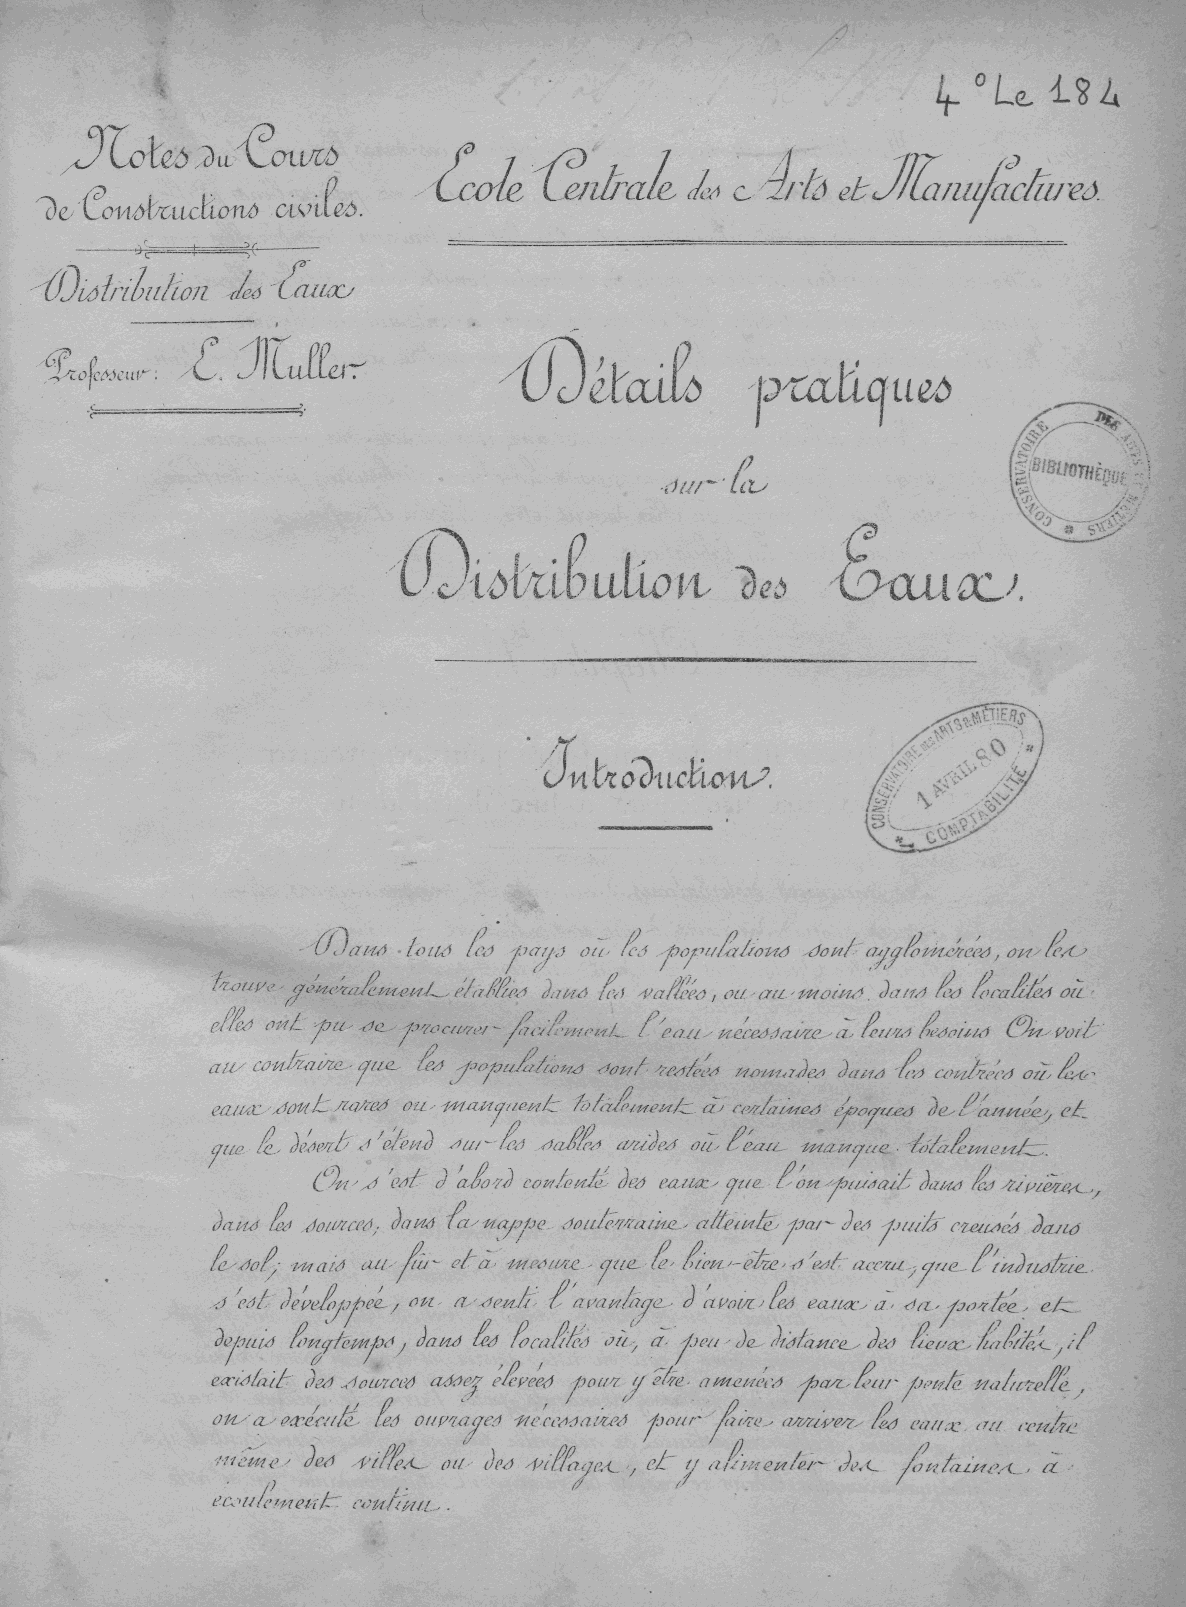 4° Le 184
Notes du Cours
de Constructions civiles.
Distribution des Eaux
Professeur: E. Muller.
Ecole Centrale des Arts et Manufactures.
Détails pratiques
sur la
Distribution des Eaux.
CONSERVATOIRE DES ARTS ET MÉTIERS
BIBLIOTHÈQUE
Introduction.
CONSERVATOIRE DES ARTS & MÉTIERS
1 AVRIL 80
COMPTABILITÉ
Dans tous les pays où les populations sont agglomérées, on les
trouve généralement établies dans les vallées, ou au moins dans les localités où
elles ont pu se procurer facilement l'eau nécessaire à leurs besoins On voit
au contraire que les populations sont restées nomades dans les contrées où les
eaux sont rares ou manquent totalement à certaines époques de l'année, et
que le désert s'étend sur les sables arides où l'eau manque totalement.
On s'est d'abord contenté des eaux que l'on puisait dans les rivières,
dans les sources, dans la nappe souterraine atteinte par des puits creusés dans
le sol; mais au fûr et à mesure que le bien-être s'est accru, que l'industrie
s'est développée, on a senti l'avantage d'avoir les eaux à sa portée et
depuis longtemps, dans les localités où, à peu de distance des lieux habités, il
existait des sources assez élevées pour y être amenées par leur pente naturelle,
on a exécuté les ouvrages nécessaires pour faire arriver les eaux au centre
même des villes ou des villages, et y alimenter des fontaines à
écoulement continu.